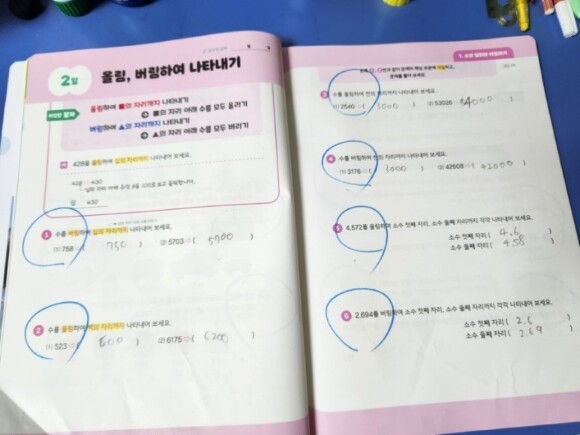 2일
올림, 버림하여 나타내기
올림하여 ■의 자리까지 나타내기
→ ■의 자리 아래 수를 모두 올리기
버림하여 ▲의 자리까지 나타내기
→ ▲의 자리 아래 수를 모두 버리기
428을 올림하여 십의 자리까지 나타내어 보세요.
428 → 430
답 430
1 수를 버림하여 십의 자리까지 나타내어 보세요.
(1) 758 → ( 750 ) (2) 5703 → ( 5700 )
2 수를 올림하여 백의 자리까지 나타내어 보세요.
(1) 523 → ( 600 ) (2) 6175 → ( 6200 )
1. 수의 범위와 어림하기
3 수를 올림하여 천의 자리까지 나타내어 보세요.
(1) 2540 → ( 3000 ) (2) 53025 → ( 54000 )
4 수를 버림하여 천의 자리까지 나타내어 보세요.
(1) 3176 → ( 3000 ) (2) 42608 → ( 42000 )
5 4.572를 올림하여 소수 첫째 자리, 소수 둘째 자리까지 각각 나타내어 보세요.
소수 첫째 자리 ( 4.6 )
소수 둘째 자리 ( 4.58 )
6 2.694를 버림하여 소수 첫째 자리, 소수 둘째 자리까지 각각 나타내어 보세요.
소수 첫째 자리 ( 2.6 )
소수 둘째 자리 ( 2.69 )